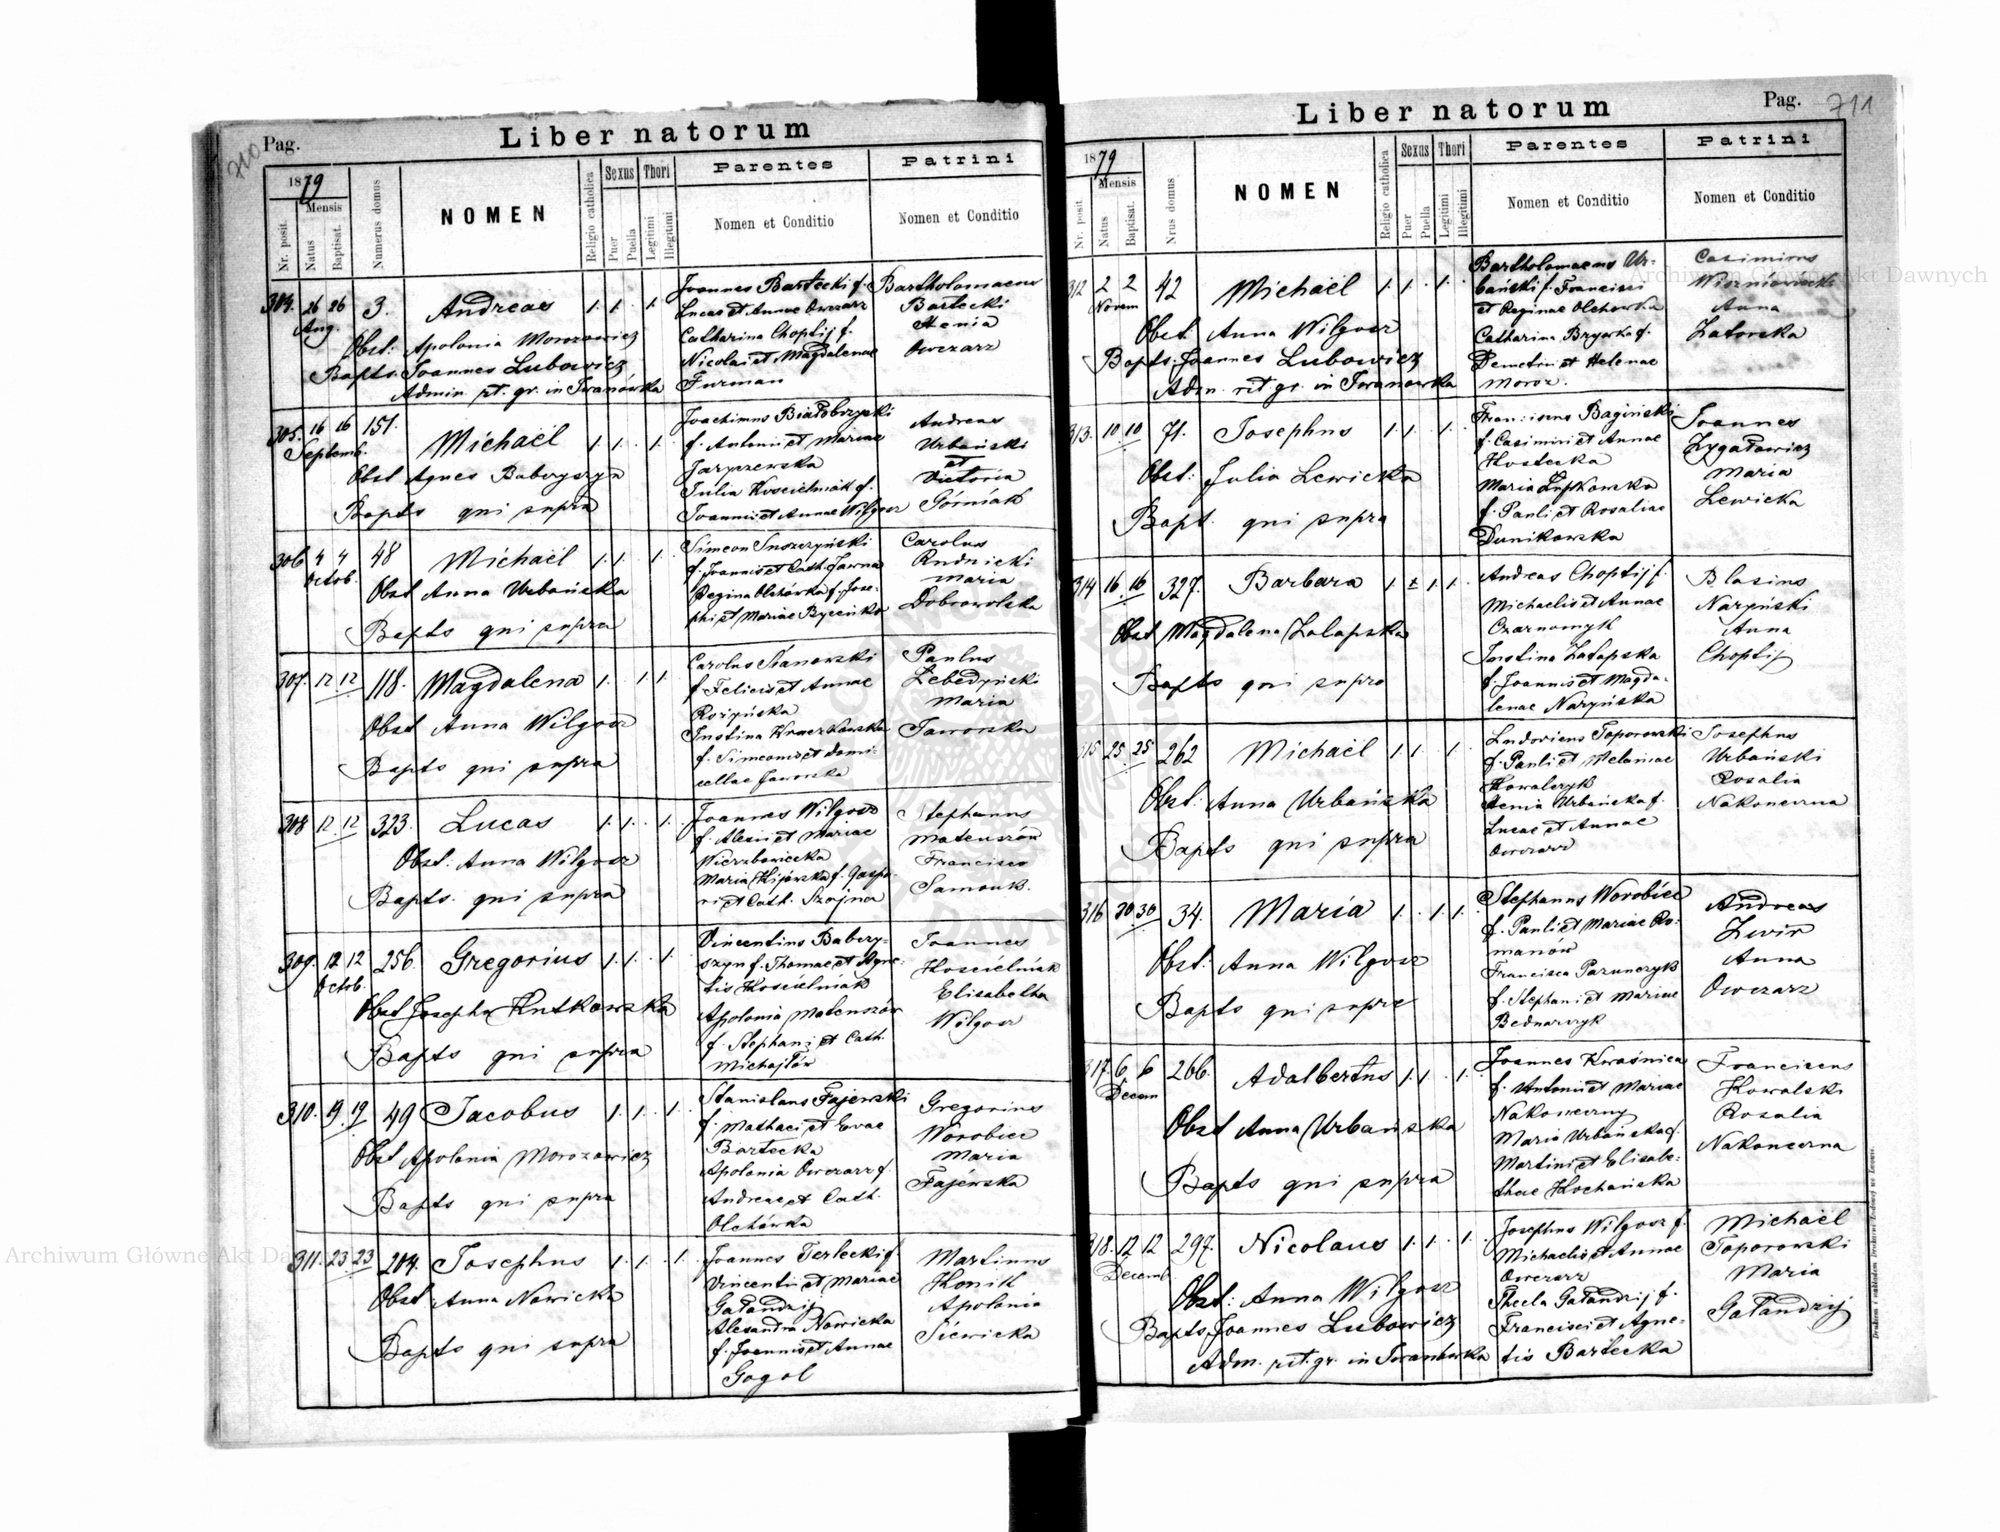 710
Pag.
Liber natorum
1879
Mensis
Nr. posit.
Natus
Baptisat.
Numerus domus
NOMEN
Religio catholica
Sexus
Puer
Puella
Thori
Legitimi
Illegitimi
Parentes
Nomen et Conditio
Patrini
Nomen et Conditio
304. 26 26 3. Andreas 1. 1. 1.
Aug.
Obst: Apolonia Morozowicz
Bapts. Joannes Lubowicz
Admin. rt. gr. in Iwanówka
Joannes Bartecki f.
Lucas et Annae Owczarz
Catharina Choptij f.
Nicolai et Magdalenae
Furman
Bartholomaeus
Bartecki
Xenia
Owczarz
305. 16 16 151. Michaël 1. 1. 1.
Septemb.
Obst Agnes Baberyszyn
Bapts qui supra
Joachimus Białobrzyski
f. Antonii et Mariae
Jaryczewska
Julia Kościelniak f.
Joannis et Annae Wilgosz
Andreas
Urbański
et
Victoria
Górniak
306 4 4 48 Michaël 1. 1. 1.
Octob.
Obst Anna Urbańska
Bapts qui supra
Simeon Snozczyński
f. Joannis et Cath. Jawna
Regina Olchówka f. Jose-
phi et Mariae Byceńko
Carolus
Rudnicki
Maria
Dobrowolska
307. 12 12 118. Magdalena 1. 1 1.
Obst Anna Wilgosz
Bapts qui supra
Carolus Sianowski
f. Felicis et Annae
Rożyńska
Justina Kraczkowska
f. Simeonis et Domi-
cellae Jaworska
Paulus
Lebedyński
Maria
Jaworska
308 12 12 323. Lucas 1. 1. 1.
Obst: Anna Wilgosz
Bapts. qui supra
Joannes Wilgosz
f. Alexii et Mariae
Wierzbowiecka
Maria Kijowska f. Gaspa-
ri et Cath. Szojna
Stephanus
Mateuszów
Francisca
Samouk.
309. 12 12 256. Gregorius 1. 1. 1.
Octob.
Obst Josepha Kutkowska
Bapts qui supra
Vincentius Babery-
szyn f. Thomae et Agne-
tis Kościelniak
Apolonia Mateuszów
f. Stephani et Cath.
Michajłów
Joannes
Kościelniak
Elisabetha
Wilgosz
310. 19 19 49 Jacobus 1. 1. 1.
Obst Apolonia Morozowicz
Bapts qui supra
Stanislaus Fajewski
f. Mathaei et Evae
Bartecka
Apolonia Owczarz f.
Andreae et Cath.
Olchówka
Gregorius
Worobiec
Maria
Fajewska
311. 23 23 204. Josephus 1. 1. 1.
Obst Anna Nowicka
Bapts qui supra
Joannes Terlecki f.
Vincentii et Mariae
Gałandzij
Alexandra Nowicka
f. Joannis et Annae
Gogol
Martinus
Konik
Apolonia
Siewicka
Liber natorum
Pag. 711
1879
Mensis
Nr. posit
Natus
Baptisat.
Nrus domus
NOMEN
Religio catholica
Sexus
Puer
Puella
Thori
Legitimi
Illegitimi
Parentes
Nomen et Conditio
Patrini
Nomen et Conditio
312 2 2 42 Michaël 1. 1. 1.
Novem
Obst: Anna Wilgosz
Bapts: Joannes Lubowicz
Adm. rit. gr. in Iwanowka
Bartholomaeus Ur-
bański f. Francisci
et Reginae Olchowka
Catharina Brzywka f.
Demetrii et Helenae
Moroz.
Casimirus
Wiszniowiecki
Anna
Zatorska
313. 10 10 71. Josephus 1. 1. 1.
Obst: Julia Lewicka
Bapt. qui supra
Franciscus Bagiński
f. Casimiri et Annae
Kostecka
Maria Lipkowska
f. Pauli et Rosaliae
Dunikowska
Joannes
Zygałowicz
Maria
Lewicka
314 16 16 327. Barbara 1. 1 1
Obst Magdalena Zalapska
Bapts qui supra
Andreas Choptij f.
Michaelis et Annae
Czarnomyk
Justina Załapska
f. Joannis et Magda-
lenae Naryńska
Blasius
Naryński
Anna
Choptij
315 25. 25 262 Michaël 1. 1. 1.
Obst: Anna Urbańska
Bapts qui supra
Ludovicus Toporowski
f. Pauli et Melaniae
Kowalczyk
Xenia Urbańska f.
Lucae et Annae
Owczarz
Josephus
Urbański
Rosalia
Nakoneczna
316 30 30 34. Maria 1. 1 1.
Obst: Anna Wilgosz
Bapts qui supra
Stephanus Worobiec
f. Pauli et Mariae Ro-
manów
Francisca Paruńczyk
f. Stephani et Mariae
Bednarczyk
Andreas
Zwir
Anna
Owczarz
317. 6 6 266. Adalbertus 1. 1. 1.
Decem
Obst Anna Urbańska
Bapts qui supra
Joannes Kwaśnica
f. Antonii et Mariae
Nakoneczny
Maria Urbańska f.
Martini et Elisabe-
thae Kochańska
Franciscus
Kowalski
Rosalia
Nakoneczna
318. 12 12 297. Nicolaus 1. 1. 1.
Decemb.
Obst: Anna Wilgosz
Bapts Joannes Lubowicz
Adm. rit. gr. in Iwanówka
Josephus Wilgosz f.
Michaelis et Annae
Owczarz
Thecla Gałandzij f.
Francisci et Agne-
tis Bartecka
Michaël
Toporowski
Maria
Gałandzij
Drukiem i nakładem Drukarni Ludowej we Lwowie.
Archiwum Główne Akt Dawnych
Archiwum Główne Akt Dawnych